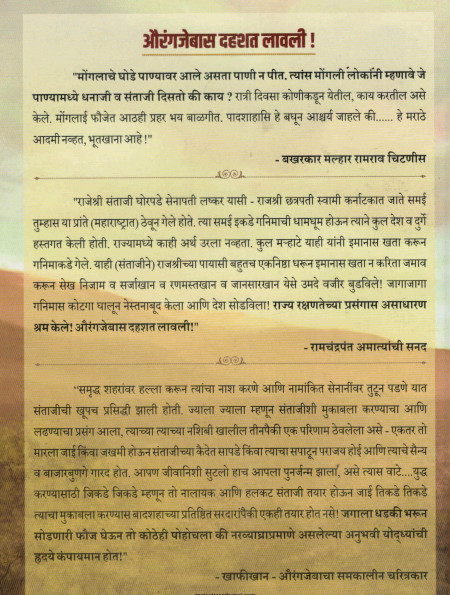 औरंगजेबास दहशत लावली !
"मोंगलाचे घोडे पाण्यावर आले असता पाणी न पीत. त्यांस मोंगली लोकांनी म्हणावे जे
पाण्यामध्ये धनाजी व संताजी दिसतो की काय ? रात्री दिवसा कोणीकडून येतील, काय करतील असे
केले. मोंगलाई फौजेत आठही प्रहर भय बाळगीत. पादशाहासि हे बघून आश्चर्य जाहले की...... हे मराठे
आदमी नव्हत, भूतखाना आहे !"
- बखरकार मल्हार रामराव चिटणीस
"राजेश्री संताजी घोरपडे सेनापती लष्कर यासी - राजश्री छत्रपती स्वामी कर्नाटकात जाते समई
तुम्हास या प्रांते (महाराष्ट्रात) ठेवून गेले होते. त्या समई इकडे गनिमाची घामघूम होऊन त्याने कुल देश व दुर्गे
हस्तगत केली होती. राज्यामध्ये काही अर्थ उरला नव्हता. कुल मऱ्हाटे याही यांनी इमानास खता करून
गनिमाकडे गेले. याही (संताजीने) राजश्रीच्या पायासी बहुतच एकनिष्ठा धरून इमानास खता न करिता जमाव
करून सेख निजाम व सर्जाखान व रणमस्तखान व जानसारखान येसे उमदे वजीर बुडविले! जागाजागा
गनिमास कोटगा घालून नेस्तनाबूद केला आणि देश सोडविला! राज्य रक्षणतेच्या प्रसंगास असाधारण
श्रम केले! औरंगजेबास दहशत लावली!"
- रामचंद्रपंत अमात्यांची सनद
"समृद्ध शहरांवर हल्ला करून त्यांचा नाश करणे आणि नामांकित सेनानींवर तुटून पडणे यात
संताजीची खूपच प्रसिद्धी झाली होती. ज्याला ज्याला म्हणून संताजीशी मुकाबला करण्याचा आणि
लढण्याचा प्रसंग आला, त्याच्या त्याच्या नशिबी खालील तीनपैकी एक परिणाम ठेवलेला असे - एकतर तो
मारला जाई किंवा जखमी होऊन संताजीच्या कैदेत सापडे किंवा त्याचा सपाटून पराजय होई आणि त्याचे सैन्य
व बाजारबुणगे गारद होत. आपण जीवानिशी सुटलो हाच आपला पुनर्जन्म झाला, असे त्यास वाटे....युद्ध
करण्यासाठी जिकडे जिकडे म्हणून तो नालायक आणि हलकट संताजी तयार होऊन जाई तिकडे तिकडे
त्याचा मुकाबला करण्यास बादशहाच्या प्रतिष्ठित सरदारांपैकी एकही तयार होत नसे! जगाला धडकी भरून
सोडणारी फौज घेऊन तो कोठेही पोहोचला की नरव्याघ्राप्रमाणे असलेल्या अनुभवी योद्ध्यांची
ह्रदये कंपायमान होत!"
- खाफीखान - औरंगजेबाचा समकालीन चरित्रकार